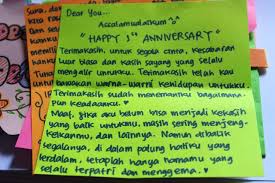 Dear You...
Assalamualaikum
"HAPPY 1st ANNIVERSARY"
Terimakasih untuk segala cinta, kesabaran
luar biasa dan kasih sayang yang selalu
mengalir untukku. Terimakasih telah kau
bawakan warna-warni kehidupan untukku.
Terimakasih sudah menemaniku bagaimana-
pun keadaanku.
Maaf, jika aku belum bisa menjadi kekasih
yang baik untukmu, masih sering menjeng-
kelkanmu, dan lainnya. Namun dibalik
segalanya, di dalam palung hatiku yang
terdalam, tetaplah hanya namamu yang
selalu terpatri dan menggema.